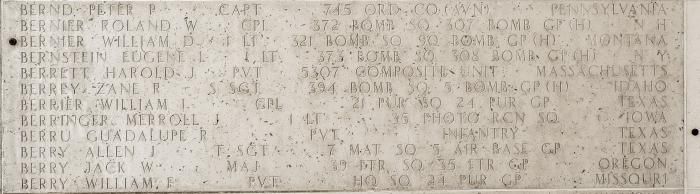 BERND PETER P · CAPT · 745 ORD CO (AVN) · PENNSYLVANIA
BERNIER ROLAND W · CPL · 372 BOMB SQ 307 BOMB GP (H) · N H
BERNIER WILLIAM D · 1 LT · 321 BOMB SQ 90 BOMB GP (H) · MONTANA
BERNSTEIN EUGENE L · 1 LT · 373 BOMB SQ 308 BOMB GP (H) · N Y
BERRETT HAROLD J · PVT · 5307 COMPOSITE UNIT · MASSACHUSETTS
BERREY ZANE R · S SGT · 394 BOMB SQ 5 BOMB GP (H) · IDAHO
BERRIER WILLIAM L · CPL · 21 PUR SQ 24 PUR GP · TEXAS
BERRINGER MERROLL J · 1 LT · 36 PHOTO RCN SQ · IOWA
BERRU GUADALUPE R · PVT · INFANTRY · TEXAS
BERRY ALLEN J · T SGT · 7 MAT SQ 5 AIR BASE GP · TEXAS
BERRY JACK W · MAJ · 39 FTR SQ 35 FTR GP · OREGON
BERRY WILLIAM E · PVT · HQ SQ 24 PUR GP · MISSOURI